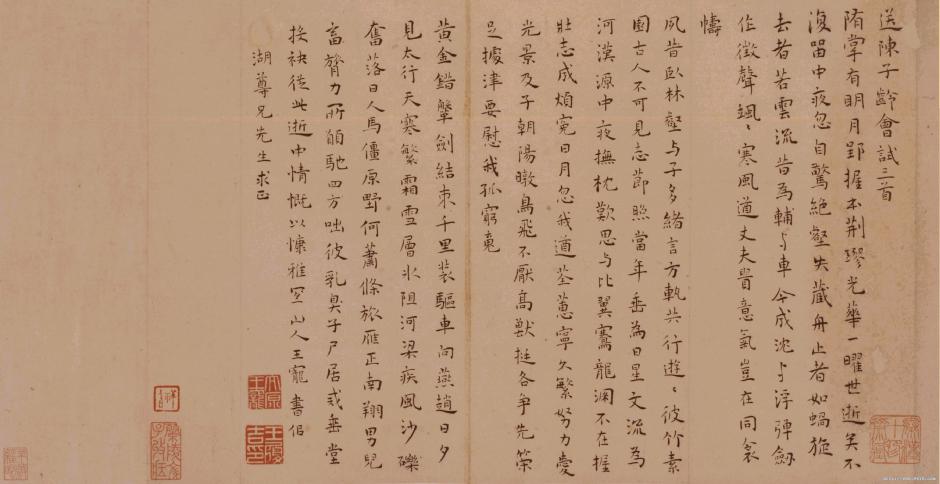 送陳子齡會試三首
隋掌有明月郢握本荆璆光華一曜世逝矣不
復留中夜忽自驚絶壑失藏舟止者如蝸旋
去者若雲流昔為輔與車今成沈與浮彈劔
作徵聲颯颯寒風道丈夫貴意氣豈在同衾
幬
夙昔卧林壑与子多緒言方軌共行遊遊彼竹素
園古人不可見志節照當年垂為日星文流為
河漢源中夜撫枕歎思与比翼騫龍淵不在握
壯志成煩寃日月忽我遒荃蕙寧久繁努力愛
光景及子朝陽暾鳥飛不厭高獸挺各争先榮
足據津要慰我孤窮
黄金錯鞶劍結束千里装驅車向燕趙日夕
見太行天寒繁霜雪層氷阻河梁疾風沙礫
奮落日人馬僵原野何蕭條旅雁正南翔男兒
富膂力所願馳四方咄彼乳臭子尸居戒垂堂
挨袂從此逝中情慨以慷雅宜山人王寵書侣
湖尊兄先生求正